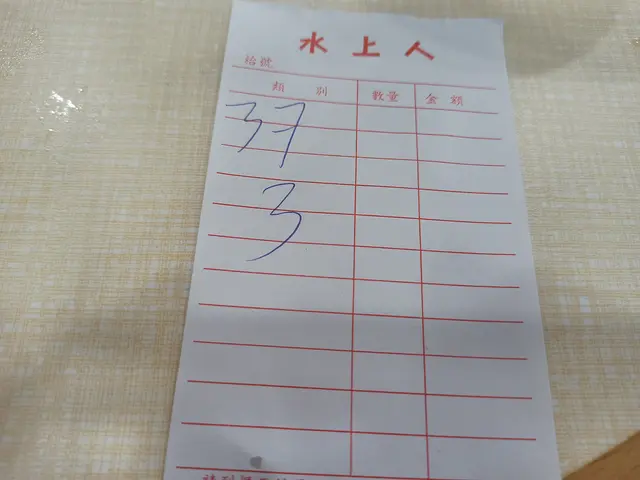 水上人
枱號
類 別 數量 金 額
37
3